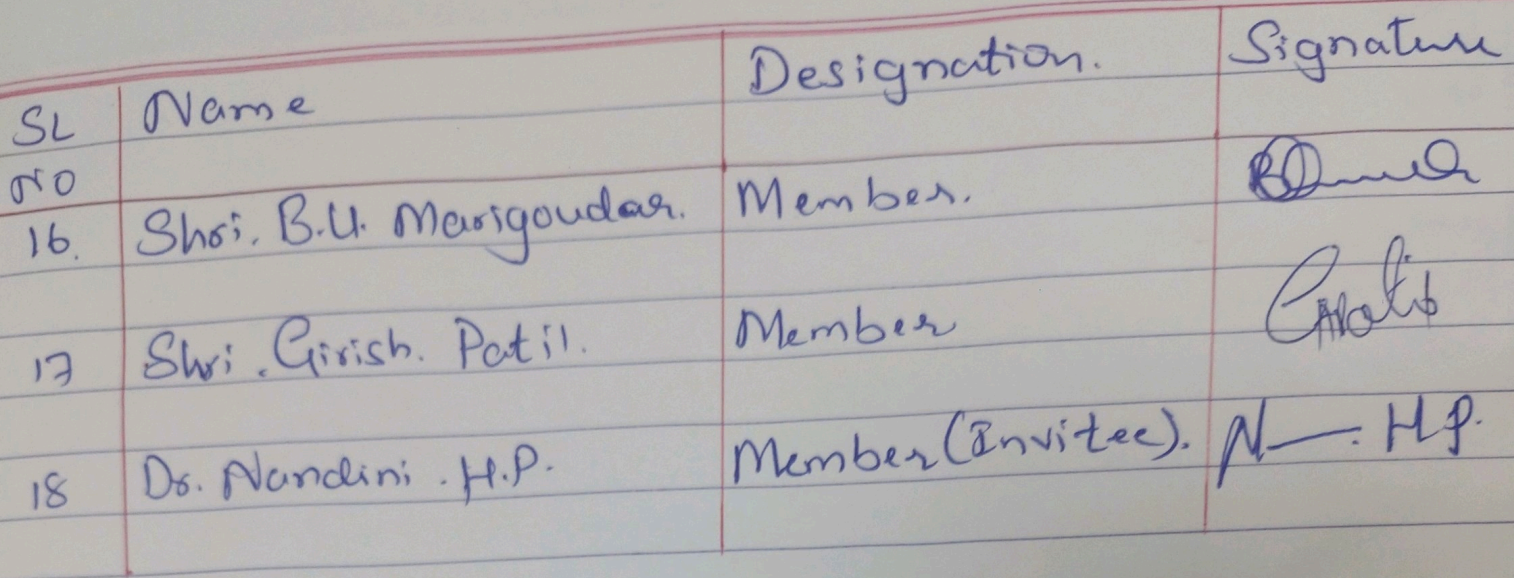 SL NO Name Designation. Signature
16. Shri. B.U. Marigoudar. Member.
17 Shri. Girish. Patil. Member
18 Dr. Nandini. H.P. Member (Invitee). N—. H.P.